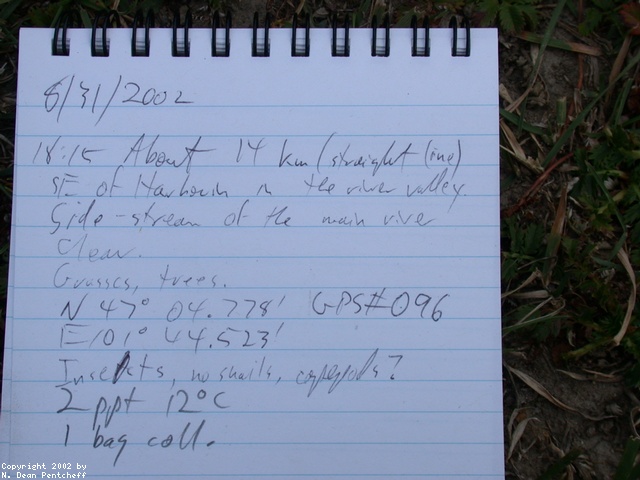 8/31/2002
18:15 About 14 km (straight line)
SE of Harhorin in the river valley.
Side-stream of the main river
Clear.
Grasses, trees.
N 47° 04.778' GPS#096
E101° 44.523'
Insects, no snails, copepods?
2 ppt 12°C
1 bag coll.
Copyright 2002 by
N. Dean Pentcheff